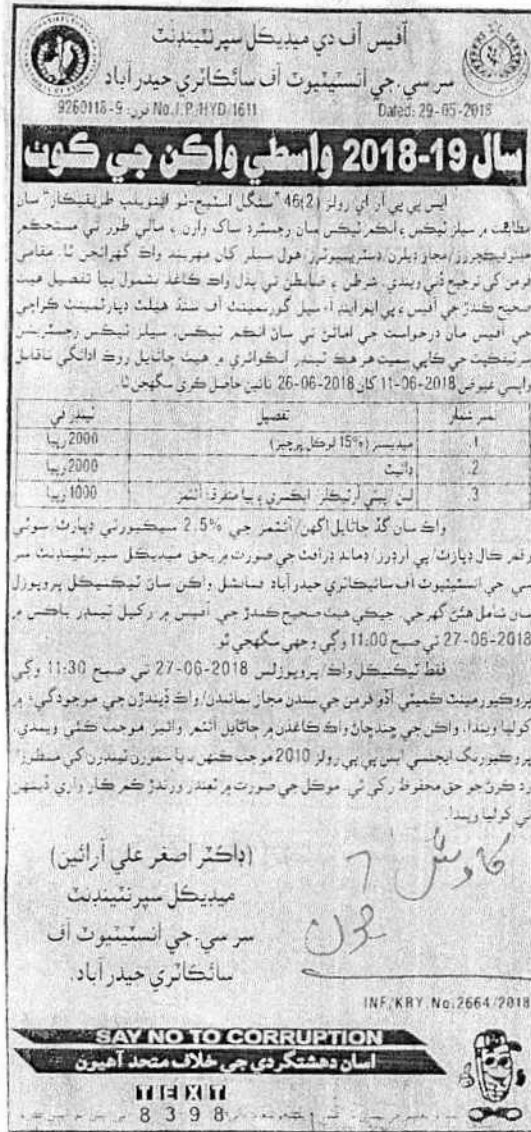 آفيس آف دي ميڊيڪل سپرنٽينڊنٽ
سر سي.جي انسٽيٽيوٽ آف سائڪاٽري حيدرآباد
No.I.P./HYD/1611 فون: 9-9260118
Dated: 29-05-2018
سال 19-2018 واسطي واڪن جي ڪوٺ
ايس پي پي آر اي رولز (2)46 "سنگل اسٽيج-ٽو اينويلپ طريقيڪار" سان
مطابقت ۾ سيلز ٽيڪس ۽ انڪم ٽيڪس سان رجسٽرڊ ساک وارن ۽ مالي طور تي مستحڪم
مينوفيڪچررز/مجاز ڊيلرن/ڊسٽريبيوٽرز/هول سيلر کان مهربند واڪ گهرائجن ٿا. مقامي
فرمن کي ترجيح ڏني ويندي. شرطن ۽ ضابطن تي ٻڌل واڪ ڪاغذ بشمول ٻيا تفصيل هيٺ
صحيح ڪندڙ جي آفيس ۽ پي ايم اينڊ آءِ سيل گورنمينٽ آف سنڌ هيلٿ ڊپارٽمينٽ ڪراچي
جي آفيس مان درخواست جي امانئن تي سان انڪم ٽيڪس، سيلز ٽيڪس رجسٽريشن
سرٽيفڪيٽ جي ڪاپي سميت هر هڪ ٽينڊر انڪوائري ۾ هيٺ ڄاڻايل روڪ ادائگي ناقابل
واپسي عيوض 2018-06-11 کان 2018-06-26 تائين حاصل ڪري سگهجن ٿا.
نمبر شمار تفصيل ٽينڊر في
1. ميڊيسن (%15 لوڪل پرچيز) 2000 رپيا
2. ڊائيٽ 2000 رپيا
3. لنن بيڊنگ آرٽيڪلز، ايڪسري ۽ ٻيا متفرقہ آئٽمز 1000 رپيا
واڪ سان گڏ ڄاڻايل اگهن/آئٽمز جي %2.5 سيڪيورٽي ڊپازٽ/سوٽي
رقم ڪال ڊپازٽ/پي آرڊرز/ڊمانڊ ڊرافٽ جي صورت ۾ بحق ميڊيڪل سپرنٽينڊنٽ سر
سي جي انسٽيٽيوٽ آف سائيڪاٽري حيدرآباد فنانشل واڪن سان ٽيڪنيڪل پروپوزل
سان شامل هئڻ گهرجي. جيڪي هيٺ صحيح ڪندڙ جي آفيس ۾ رکيل ٽينڊر باڪس ۾
2018-06-27 تي صبح 11:00 وڳي وجهي سگهجي ٿو
فقط ٽيڪنيڪل واڪ/پروپوزلس 2018-06-27 تي صبح 11:30 وڳي
پروڪيورمينٽ ڪميٽي آڏو فرمن جي سندن مجاز نمائندن/واڪ ڏيندڙن جي موجودگيءَ ۾
کوليا ويندا. واڪن جي ڇنڊڇاڻ واڪ ڪاغذن ۾ ڄاڻايل آئٽمز وائيز موجب ڪئي ويندي.
پروڪيورنگ ايجنسي ايس پي پي رولز 2010 موجب ڪنهن به يا سمورن ٽينڊرن کي منظور/
رد ڪرڻ جو حق محفوظ رکي ٿي. موڪل جي صورت ۾ ٽينڊر ورندڙ ڪم ڪار واري ڏينهن
تي کوليا ويندا.
(ڊاڪٽر اصغر علي آرائين)
ميڊيڪل سپرنٽينڊنٽ
سر سي.جي انسٽيٽيوٽ آف
سائڪاٽري حيدرآباد.
ڪاوش
7 جون
INF/KRY.No.2664/2018
SAY NO TO CORRUPTION
اسان دهشتگردي جي خلاف متحد آهيون
TEXT
8398